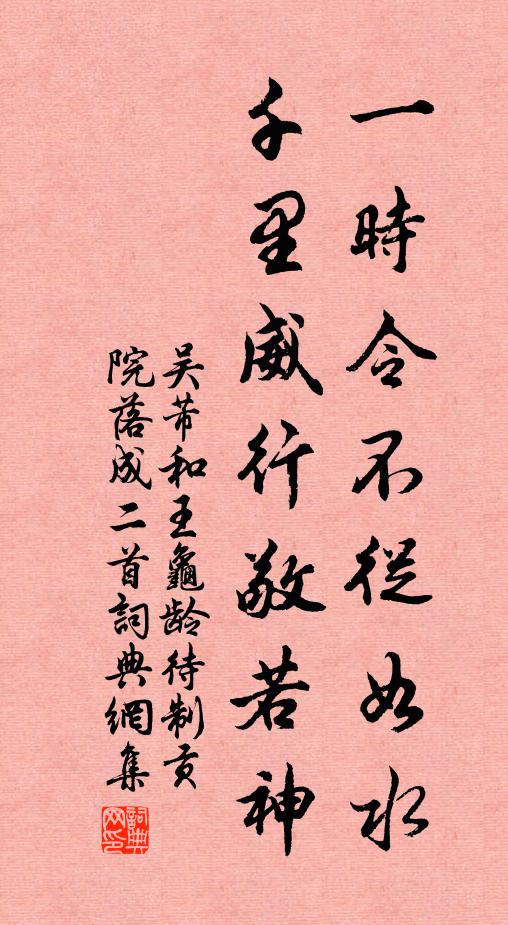 一時令不從如水
千里威行敬若神
吴芾和王龜龄待制贡
院落成二首詞典網集
詞典
网印